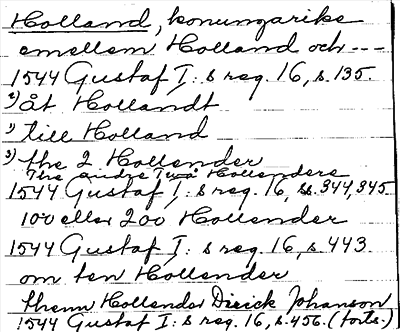 Holland, konungarike
emellem Holland och ---
1544 Gustaf I:s reg. 16, s. 135.
2) åt Hollandt
1) till Holland
3) the 2 Hollender
The andre Twå Hollenders
1544 Gustaf I:s reg. 16, ss. 344, 345
100 eller 200 Hollender
1544 Gustaf I:s reg. 16, s. 443
om ten Hollender
thenn Hollender Dirick Johanson
1544 Gustaf I:s reg. 16, s. 456. (forts.)